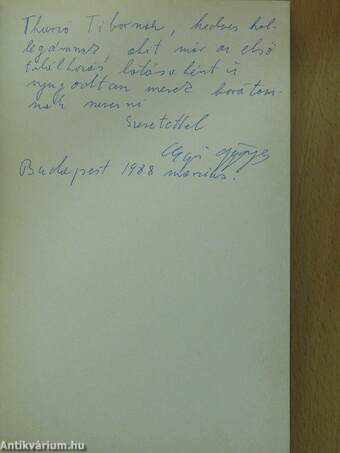 Thuró Tibornak, kedves kol-
legámnak akit már az első
találkozás
nyugodtan merek barátom-
nak nevezni
Szeretettel
György
Budapest 1988 március.
Antikvárium.hu